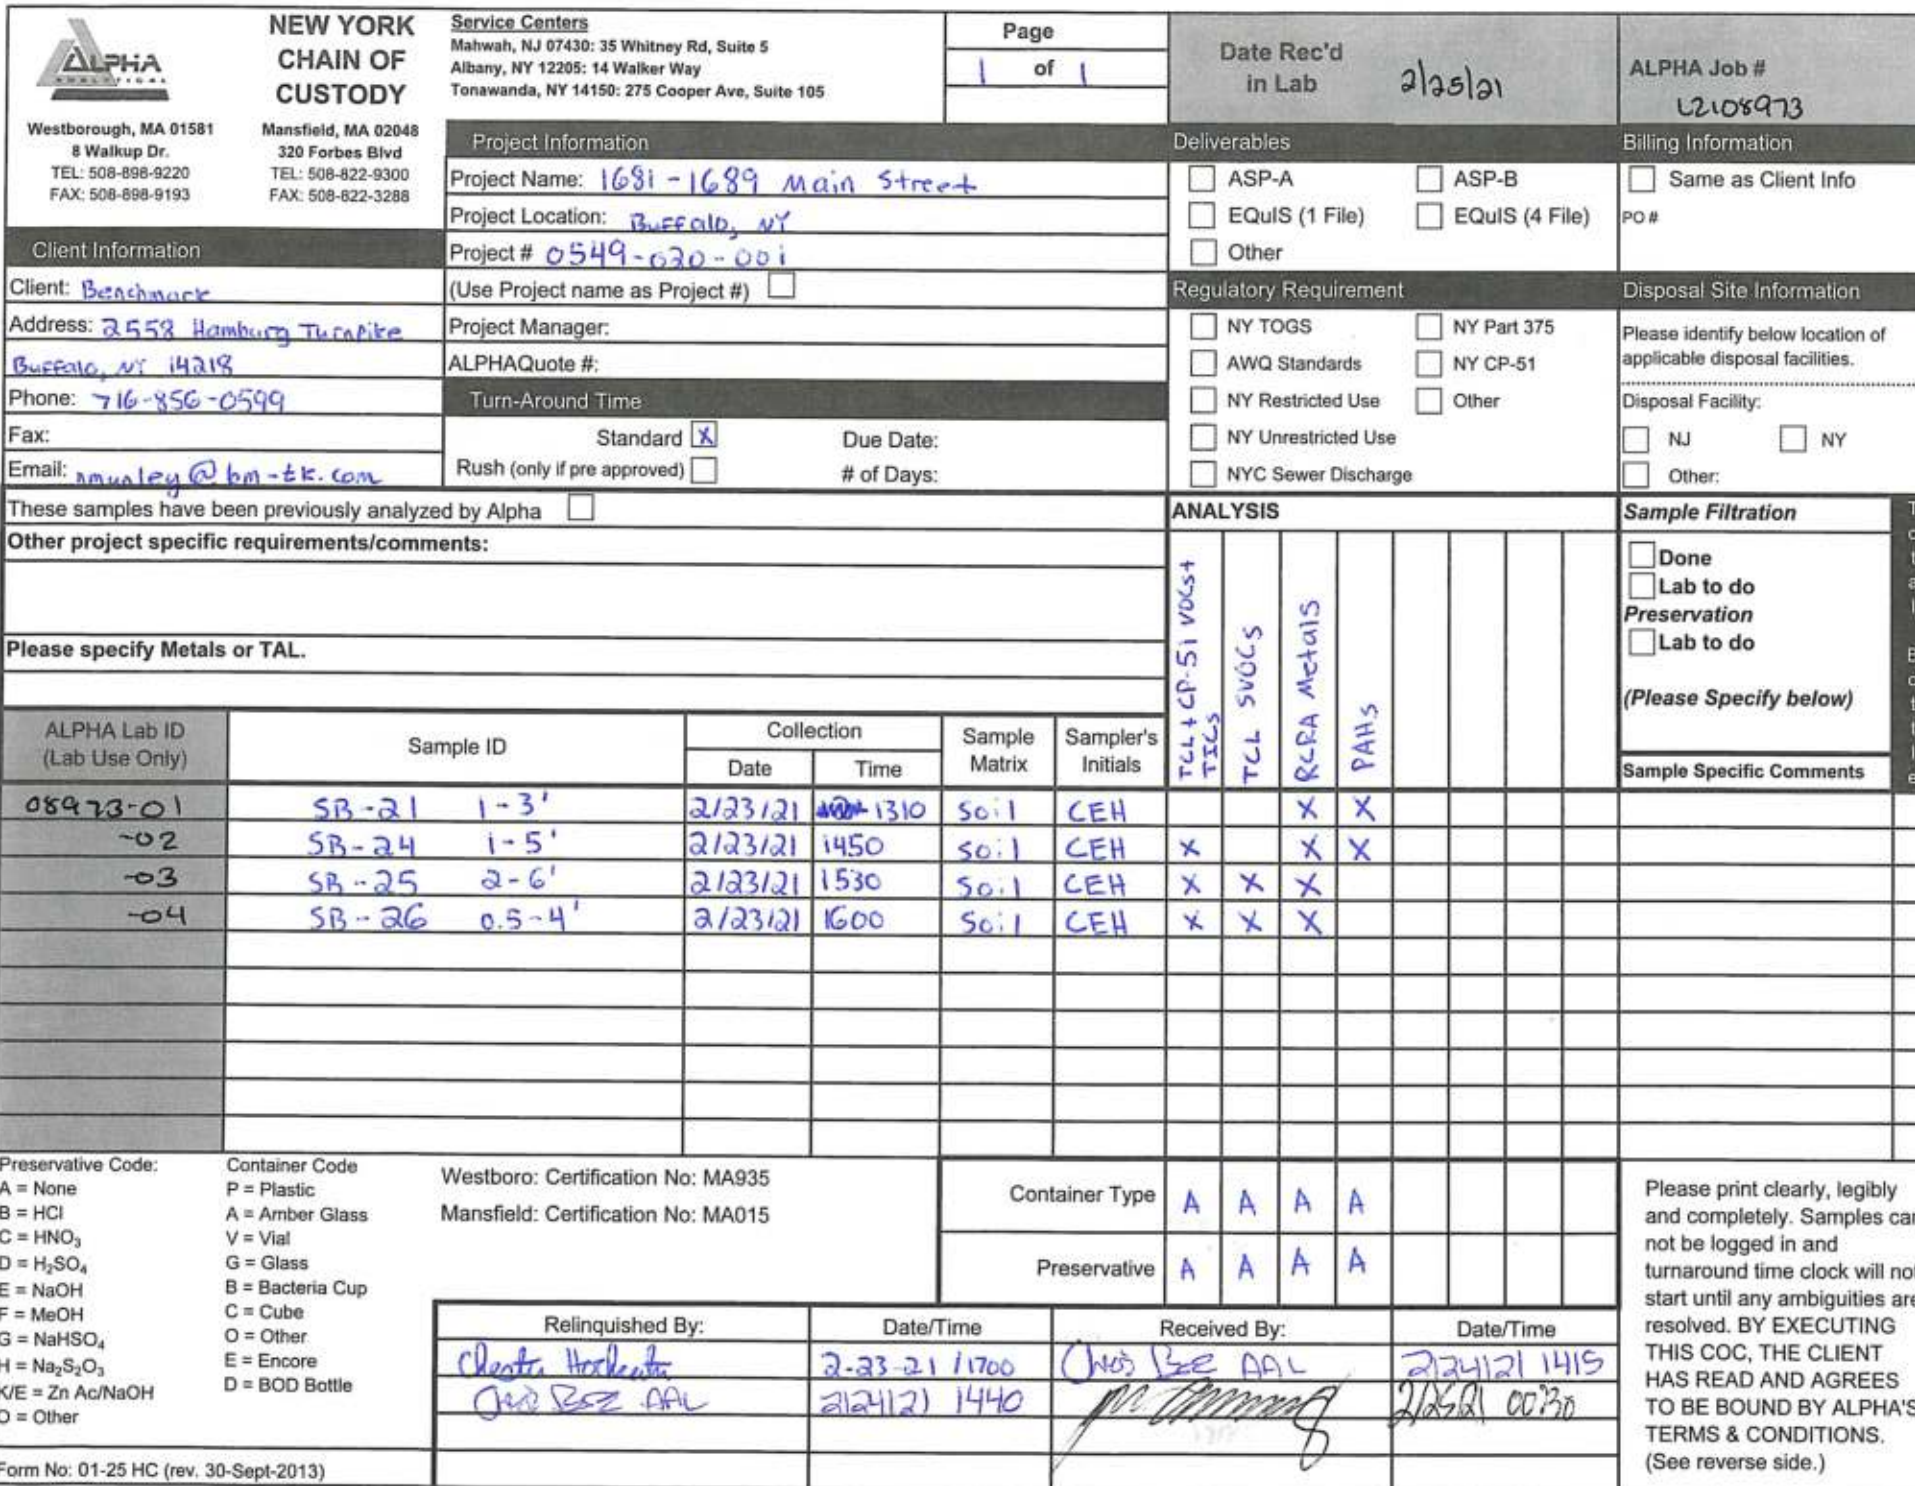 ALPHA
ANALYTICAL
Westborough, MA 01581
8 Walkup Dr.
TEL: 508-898-9220
FAX: 508-898-9193
NEW YORK
CHAIN OF
CUSTODY
Mansfield, MA 02048
320 Forbes Blvd
TEL: 508-822-9300
FAX: 508-822-3288
Service Centers
Mahwah, NJ 07430: 35 Whitney Rd, Suite 5
Albany, NY 12205: 14 Walker Way
Tonawanda, NY 14150: 275 Cooper Ave, Suite 105
Page
1 of 1
Date Rec'd
in Lab 2/25/21
ALPHA Job #
L2108973
Client Information
Client: Benchmark
Address: 2558 Hamburg Turnpike
Buffalo, NY 14218
Phone: 716-856-0599
Fax:
Email: nmunley@bm-tk.com
Project Information
Project Name: 1681-1689 Main Street
Project Location: Buffalo, NY
Project # 0549-020-001
(Use Project name as Project #)
Project Manager:
ALPHAQuote #:
Turn-Around Time
Standard X Due Date:
Rush (only if pre approved) # of Days:
Deliverables
ASP-A ASP-B
EQuIS (1 File) EQuIS (4 File)
Other
Regulatory Requirement
NY TOGS NY Part 375
AWQ Standards NY CP-51
NY Restricted Use Other
NY Unrestricted Use
NYC Sewer Discharge
Billing Information
Same as Client Info
PO #
Disposal Site Information
Please identify below location of
applicable disposal facilities.
Disposal Facility:
NJ NY
Other:
These samples have been previously analyzed by Alpha
Other project specific requirements/comments:
Please specify Metals or TAL.
ANALYSIS
TCL + CP-51 VOCs+
TICs
TCL SVOCs
RCRA Metals
PAHs
Sample Filtration
Done
Lab to do
Preservation
Lab to do
(Please Specify below)
Sample Specific Comments
ALPHA Lab ID
(Lab Use Only)
Sample ID
Collection
Date Time
Sample
Matrix
Sampler's
Initials
08973-01 SB-21 1-3' 2/23/21 1310 Soil CEH X X
-02 SB-24 1-5' 2/23/21 1450 Soil CEH X X X
-03 SB-25 2-6' 2/23/21 1530 Soil CEH X X X
-04 SB-26 0.5-4' 2/23/21 1600 Soil CEH X X X
Preservative Code:
A = None
B = HCl
C = HNO3
D = H2SO4
E = NaOH
F = MeOH
G = NaHSO4
H = Na2S2O3
K/E = Zn Ac/NaOH
O = Other
Container Code
P = Plastic
A = Amber Glass
V = Vial
G = Glass
B = Bacteria Cup
C = Cube
O = Other
E = Encore
D = BOD Bottle
Westboro: Certification No: MA935
Mansfield: Certification No: MA015
Container Type A A A A
Preservative A A A A
Relinquished By: Date/Time Received By: Date/Time
2-23-21 / 1700 AAL 2/24/21 1415
AAL 2/24/21 1440 2/25/21 0030
Please print clearly, legibly
and completely. Samples can
not be logged in and
turnaround time clock will not
start until any ambiguities are
resolved. BY EXECUTING
THIS COC, THE CLIENT
HAS READ AND AGREES
TO BE BOUND BY ALPHA'S
TERMS & CONDITIONS.
(See reverse side.)
Form No: 01-25 HC (rev. 30-Sept-2013)